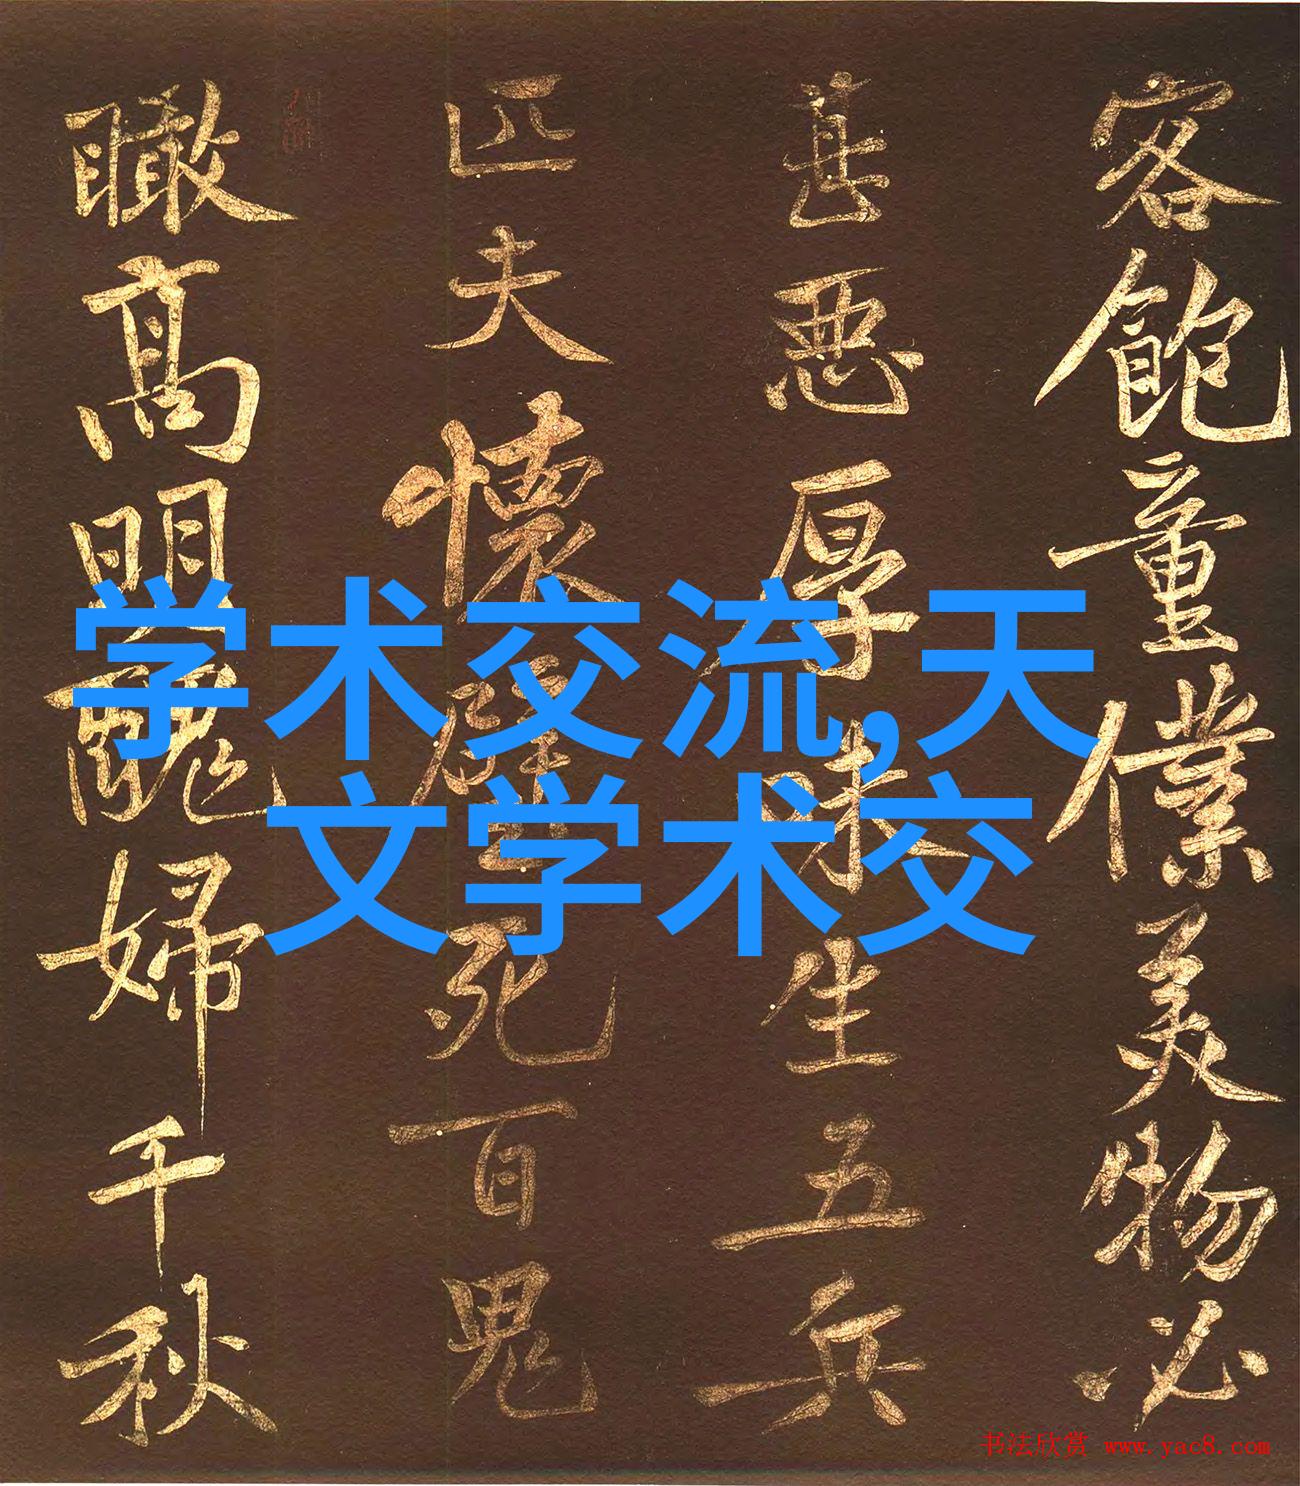 客飽童僕美物必
甚惡厚味生五兵
匹夫懷璧死百鬼
瞰高明醜婦千秋
学术交流,天
文学术交
书法欣赏 www.yac8.com